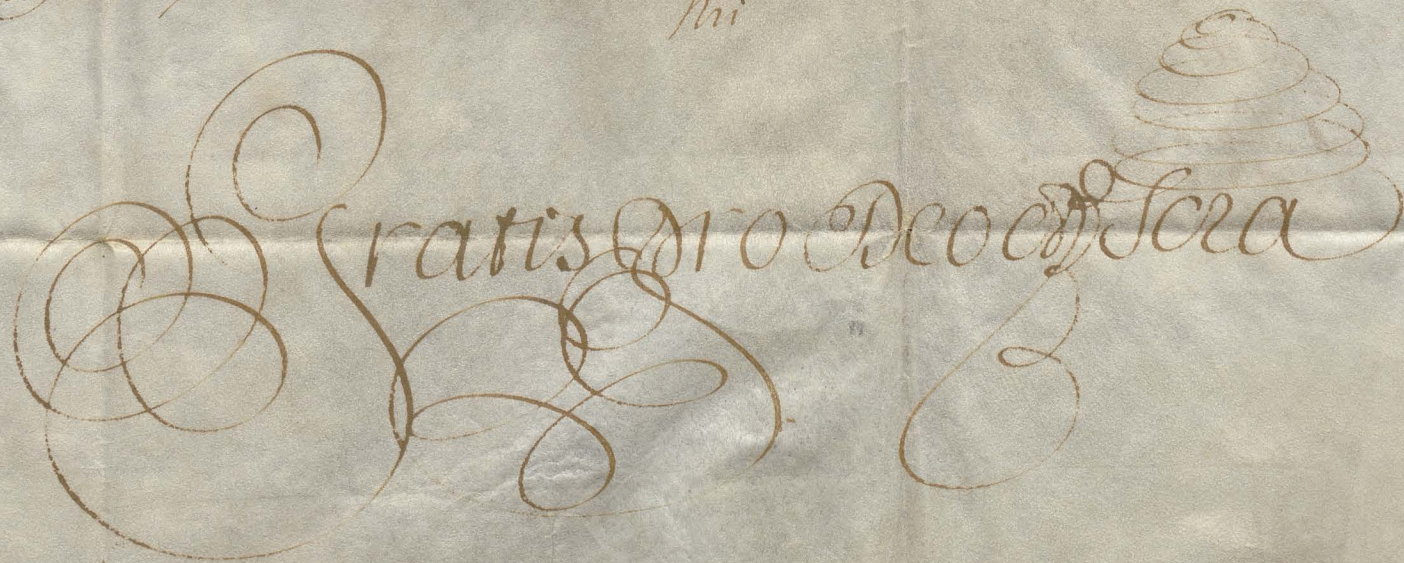 Gratis Pro Deo et Scra